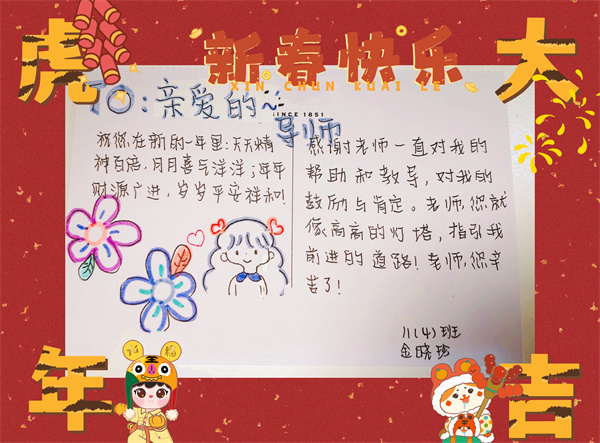 虎
新春快乐
XIN CHUN KUAI LE
大
TO：亲爱的~
SINCE 1851
导师
祝您在新的一年里：天天精
神百倍，月月喜气洋洋；年年
财源广进，岁岁平安祥和！
感谢老师一直对我的
帮助和教导，对我的
鼓励与肯定。老师，您就
像高高的灯塔，指引我
前进的道路！老师，您辛
苦了！
11(4)班
年
吉